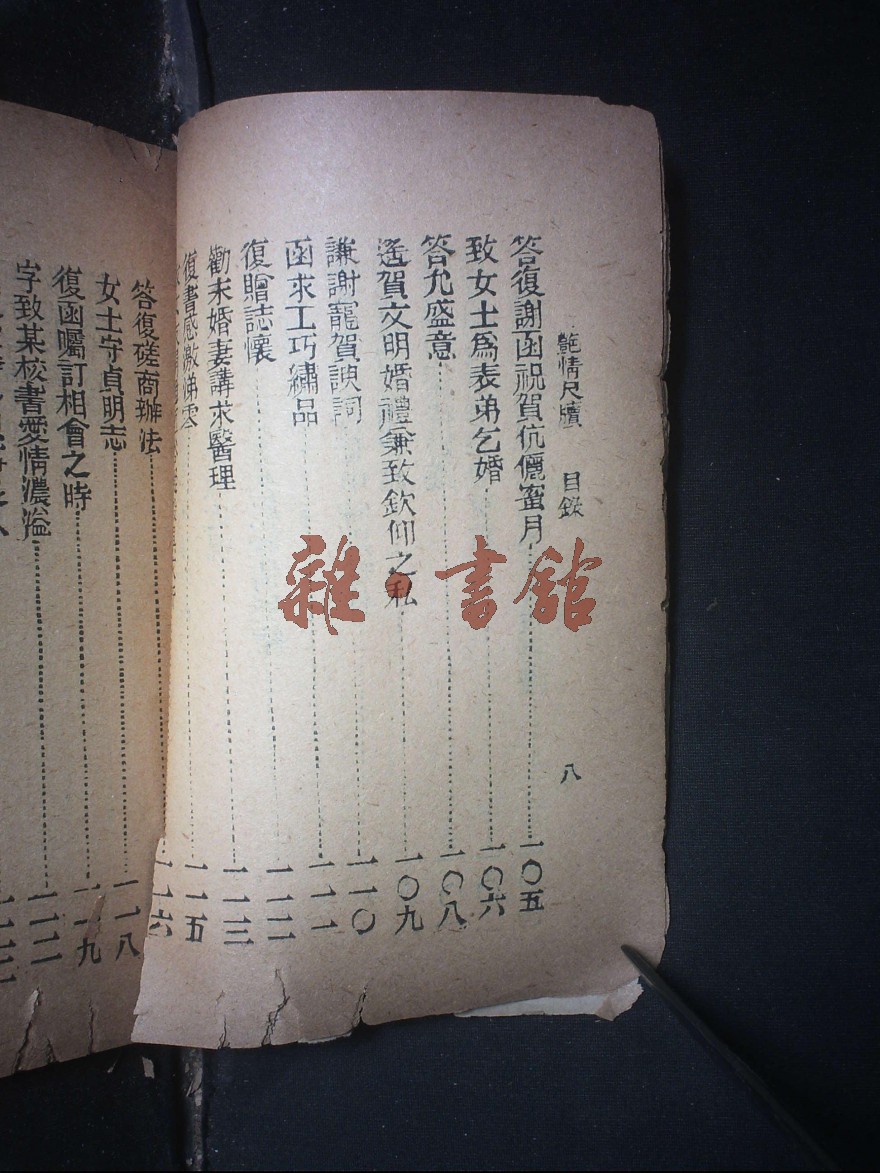 艷情尺牘 目錄 八
答復謝函祝賀伉儷蜜月 一〇五
致女士爲表弟乞婚 一〇六
答允盛意 一〇八
遙賀文明婚禮兼致欽仰之私 一〇九
謙謝寵賀諛詞 一一〇
函求工巧繡品 一一一
復贈誌懷 一一二
勸未婚妻講求醫理 一一三
復書感激涕零 一一五
一一六
答復磋商辦法
女士守貞明志 一一八
復函囑訂相會之時 一一九
字致某校書愛情濃溢 一二一
雜·書館